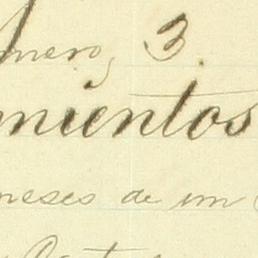 mero, 3.
mientos
meses de un